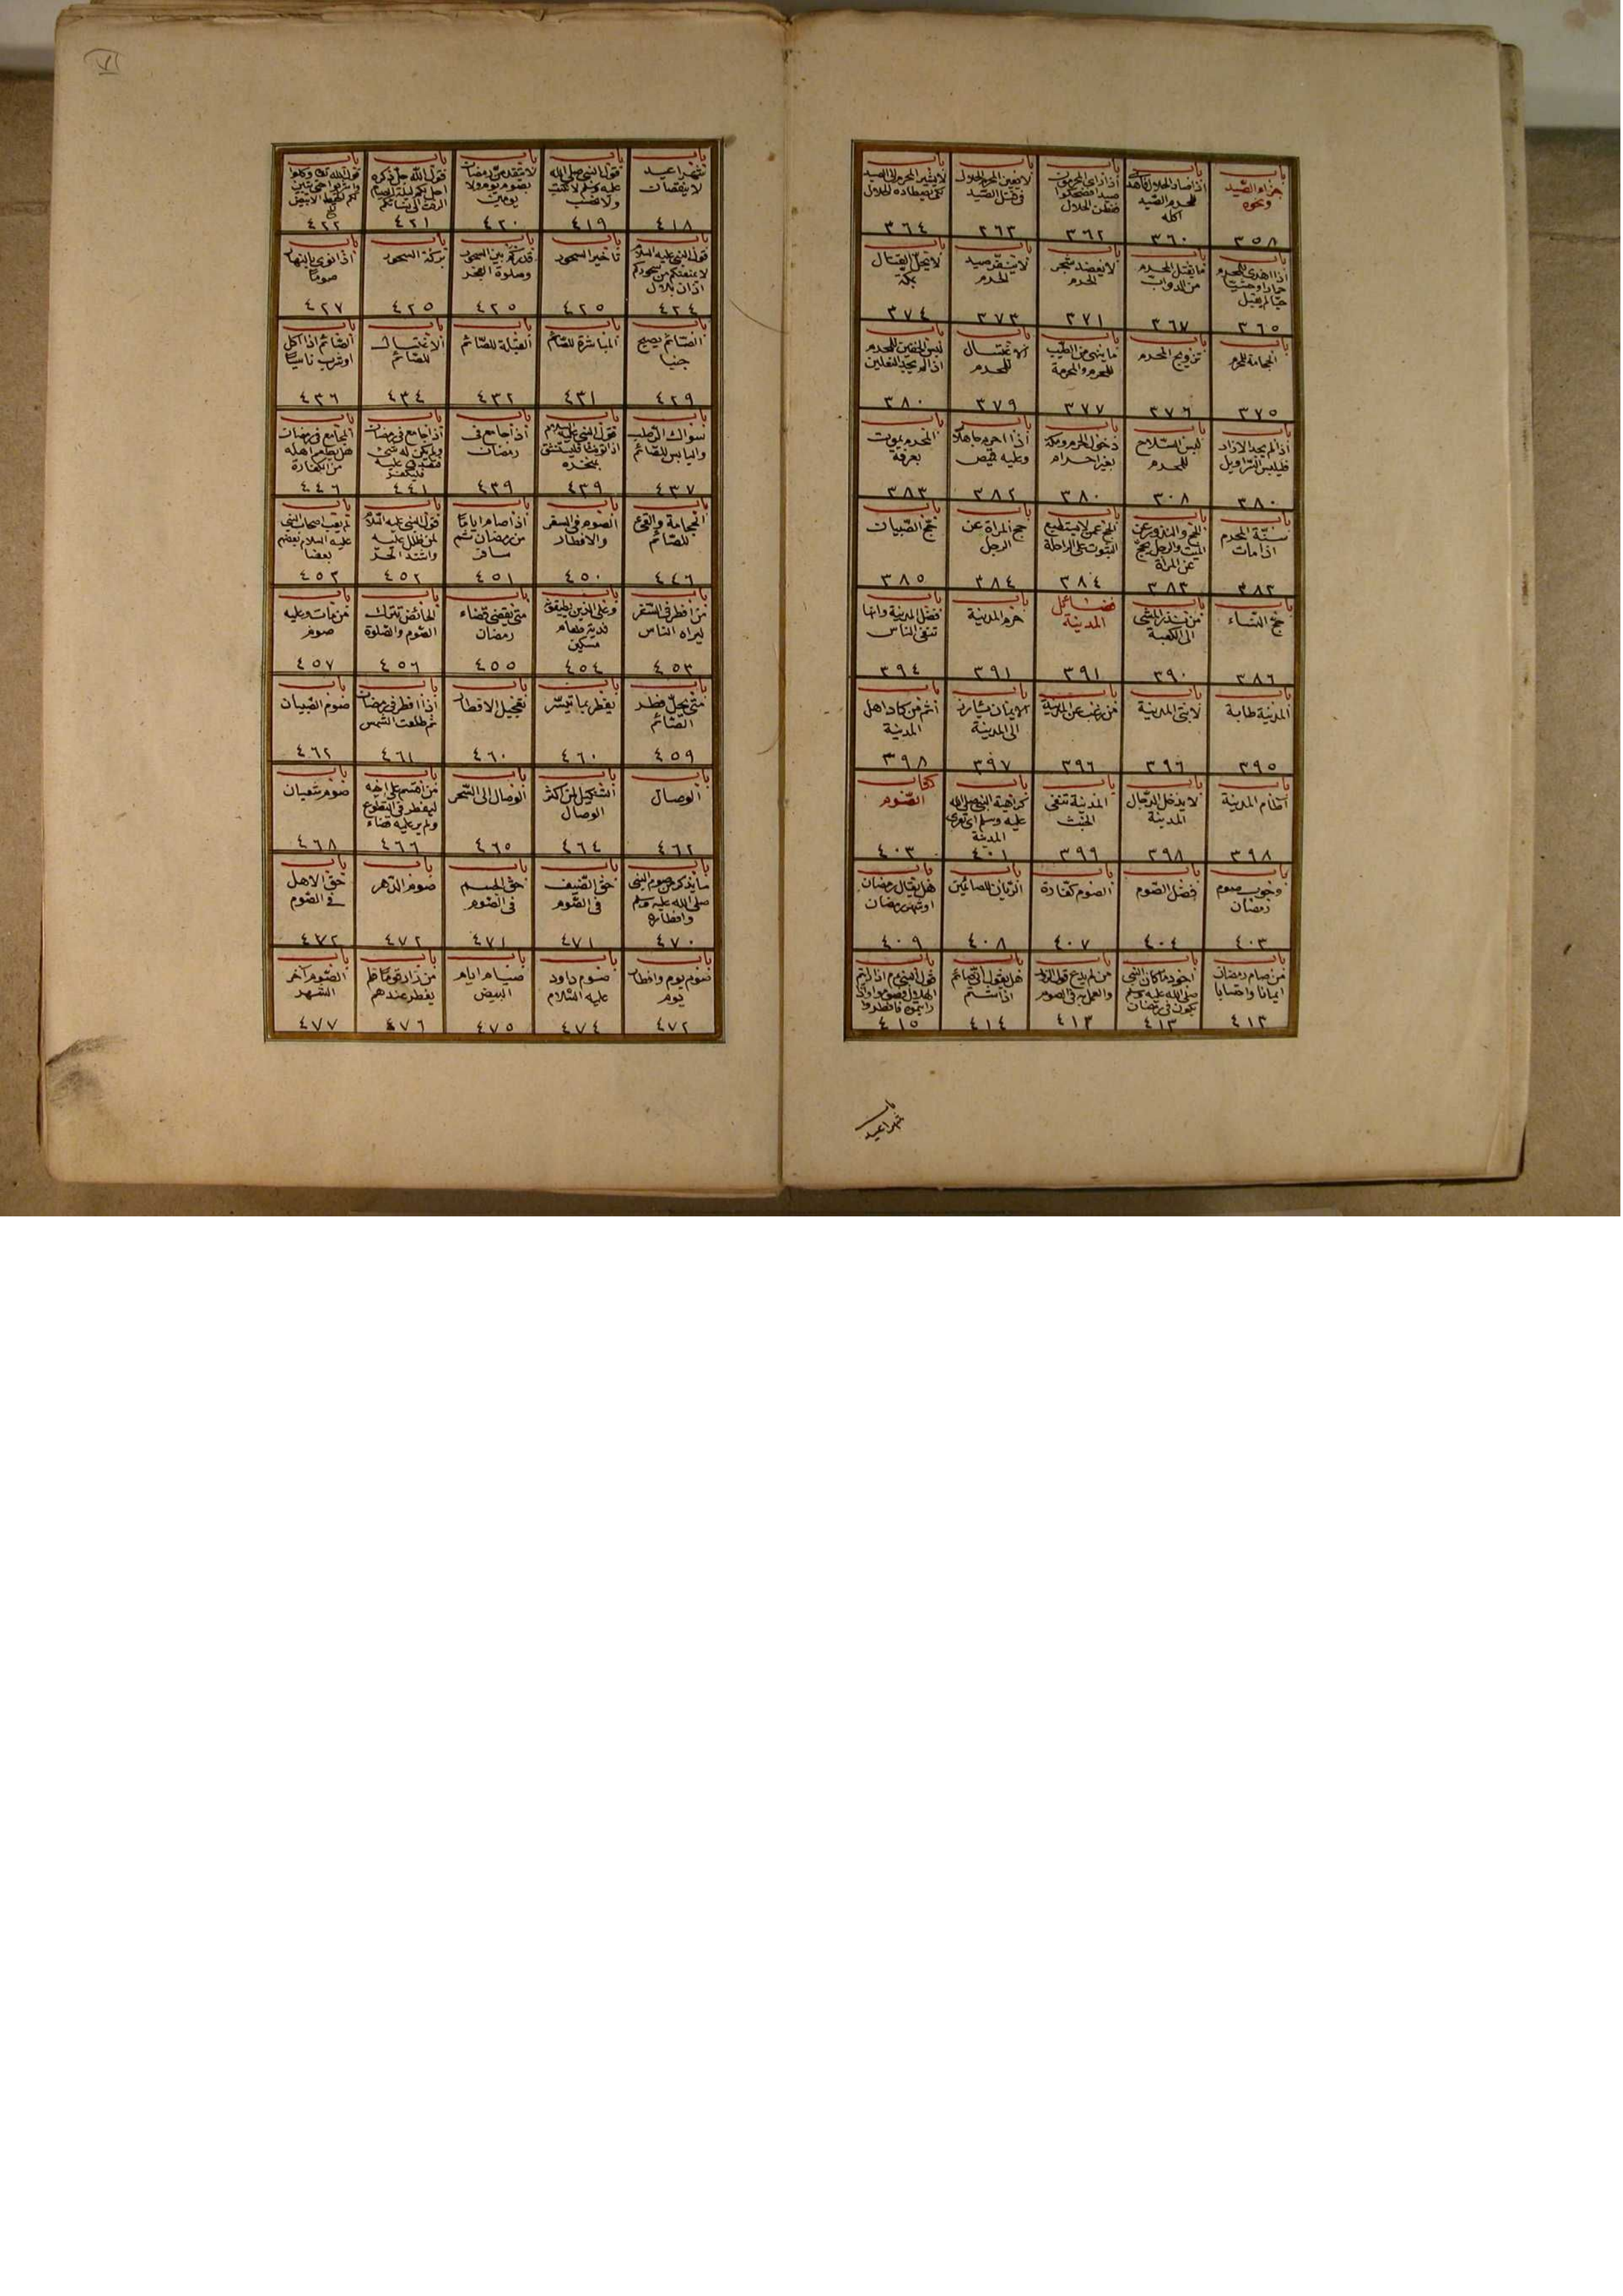 باب جزاء الصيد ونحوه ٣٥٨
باب اذا صاد الحلال فاهدى للمحرم الصيد اكله ٣٦٠
باب اذا راى المحرمون صيدا فضحكوا ففطن الحلال ٣٦٢
باب لا يعين المحرم الحلال فى قتل الصيد ٣٦٣
باب لا يشير المحرم الى الصيد لكى يصطاده الحلال ٣٦٤
باب اذا اهدى للمحرم حمارا وحشيا حيا لم يقبل ٣٦٥
باب ما يقتل المحرم من الدواب ٣٦٧
باب لا يعضد شجر الحرم ٣٧١
باب لا ينفر صيد الحرم ٣٧٣
باب لا يحل القتال بمكة ٣٧٤
باب الحجامة للمحرم ٣٧٥
باب تزويج المحرم ٣٧٦
باب ما ينهى من الطيب للمحرم والمحرمة ٣٧٧
باب الاغتسال للمحرم ٣٧٩
باب لبس الخفين للمحرم اذا لم يجد النعلين ٣٨٠
باب اذا لم يجد الازار فليلبس السراويل ٣٨٠
باب لبس السلاح للمحرم ٣٠٨
باب دخول الحرم ومكة بغير احرام ٣٨٠
باب اذا احرم جاهلا وعليه قميص ٣٨٢
باب المحرم يموت بعرفة ٣٨٣
باب سنة المحرم اذا مات ٣٨٢
باب الحج والنذور عن الميت والرجل يحج عن المرأة ٣٨٣
باب الحج عمن لا يستطيع الثبوت على الراحلة ٣٨٤
باب حج المراة عن الرجل ٣٨٤
باب حج الصبيان ٣٨٥
باب حج النساء ٣٨٦
باب من نذر المشى الى الكعبة ٣٩٠
فضائل المدينة ٣٩١
باب حرم المدينة ٣٩١
باب فضل المدينة وانها تنفى الناس ٣٩٤
باب المدينة طابة ٣٩٥
باب لابتى المدينة ٣٩٦
باب من رغب عن المدينة ٣٩٦
باب الايمان يارز الى المدينة ٣٩٧
باب اثم من كاد اهل المدينة ٣٩٨
باب آطام المدينة ٣٩٨
باب لا يدخل الدجال المدينة ٣٩٨
باب المدينة تنفى الخبث ٣٩٩
باب كراهية النبى صلى الله عليه وسلم ان تعرى المدينة ٤٠١
كتاب الصوم ٤٠٣
باب وجوب صوم رمضان ٤٠٣
باب فضل الصوم ٤٠٤
باب الصوم كفارة ٤٠٧
باب الريان للصائمين ٤٠٨
باب هل يقال رمضان او شهر رمضان ٤٠٩
باب من صام رمضان ايمانا واحتسابا ٤١٣
باب اجود ما كان النبى صلى الله عليه وسلم يكون فى رمضان ٤١٣
باب من لم يدع قول الزور والعمل به فى الصوم ٤١٣
باب هل يقول انى صائم اذا شتم ٤١٤
باب قول النبى م اذا رايتم الهلال فصوموا واذا رايتموه فافطروا ٤١٥
باب شهرا عيد
باب شهرا عيد لا ينقصان ٤١٨
باب قول النبى صلى الله عليه وسلم لا نكتب ولا نحسب ٤١٩
باب لا يتقدمن رمضان بصوم يوم ولا يومين ٤٢٠
باب قول الله جل ذكره احل لكم ليلة الصيام الرفث الى نسائكم ٤٢١
باب قول الله تعالى وكلوا واشربوا حتى يتبين لكم الخيط الابيض ٤٢٢
باب قول النبى عليه السلام لا يمنعنكم من سحوركم اذان بلال ٤٢٤
باب تاخير السحور ٤٢٥
باب قدر كم بين السحور وصلوة الفجر ٤٢٥
باب بركة السحور ٤٢٥
باب اذا نوى بالنهار صوما ٤٢٧
باب الصائم يصبح جنبا ٤٢٩
باب المباشرة للصائم ٤٣١
باب القبلة للصائم ٤٣٢
باب الاغتسال للصائم ٤٣٤
باب الصائم اذا اكل او شرب ناسيا ٤٣٦
باب سواك الرطب واليابس للصائم ٤٣٧
باب قول النبى عليه السلام اذا توضا فليستنشق بمنخره ٤٣٩
باب اذا جامع فى رمضان ٤٣٩
باب اذا جامع فى رمضان ولم يكن له شئ فتصدق عليه فليكفر ٤٤١
باب المجامع فى رمضان هل يطعم اهله من الكفارة ٤٤٦
باب الحجامة والقئ للصائم ٤٤٦
باب الصوم فى السفر والافطار ٤٥٠
باب اذا صام اياما من رمضان ثم سافر ٤٥١
باب قول النبى عليه السلام لمن ظلل عليه واشتد الحر ٤٥٢
باب لم يعب اصحاب النبى عليه السلام بعضهم بعضا ٤٥٣
باب من افطر فى السفر ليراه الناس ٤٥٣
باب وعلى الذين يطيقونه فدية طعام مسكين ٤٥٤
باب متى يقضى قضاء رمضان ٤٥٥
باب الحائض تترك الصوم والصلوة ٤٥٦
باب من مات وعليه صوم ٤٥٧
باب متى يحل فطر الصائم ٤٥٩
باب يفطر بما تيسر ٤٦٠
باب تعجيل الافطار ٤٦٠
باب اذا افطر فى رمضان ثم طلعت الشمس ٤٦١
باب صوم الصبيان ٤٦٢
باب الوصال ٤٦٢
باب التنكيل لمن اكثر الوصال ٤٦٤
باب الوصال الى السحر ٤٦٥
باب من اقسم على اخيه ليفطر فى التطوع ولم ير عليه قضاء ٤٦٦
باب صوم شعبان ٤٦٨
باب ما يذكر من صوم النبى صلى الله عليه وسلم وافطاره ٤٧٠
باب حق الضيف فى الصوم ٤٧١
باب حق الجسم فى الصوم ٤٧١
باب صوم الدهر ٤٧٢
باب حق الاهل فى الصوم ٤٧٢
باب صوم يوم وافطار يوم ٤٧٢
باب صوم داود عليه السلام ٤٧٤
باب صيام ايام البيض ٤٧٥
باب من زار قوما فلم يفطر عندهم ٤٧٦
باب الصوم آخر الشهر ٤٧٧